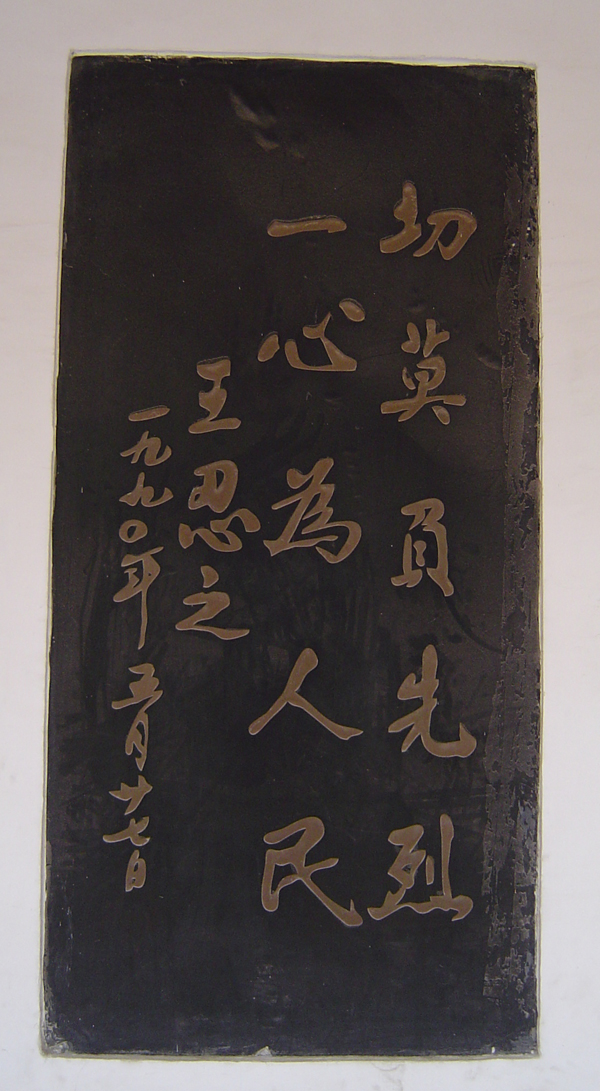 切莫負先烈
一心為人民
王忍之
一九九〇年五月廿七日